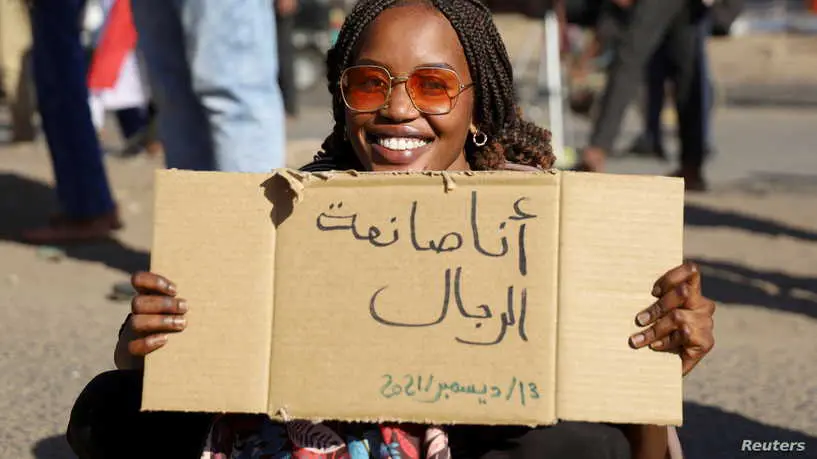 أنا صانعة
الرجال
13/ديسمبر/2021
Reuters